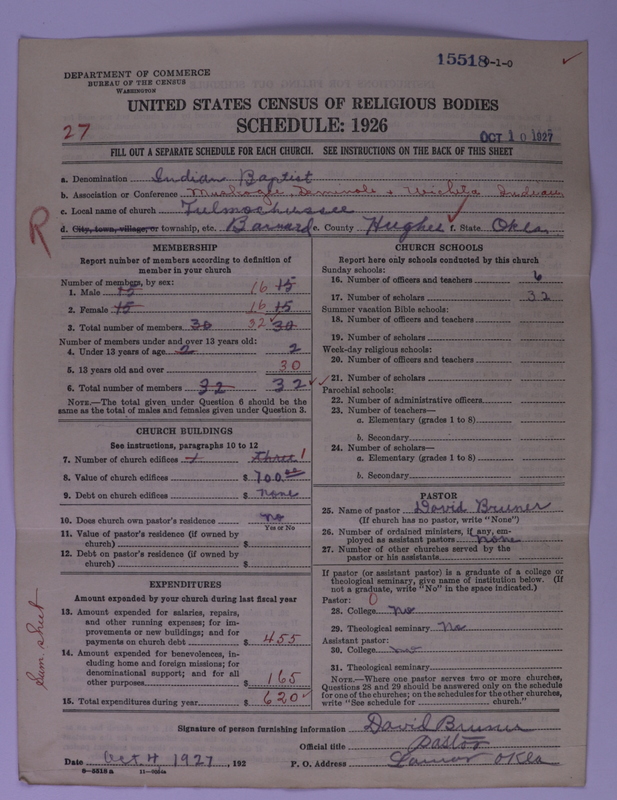 15518 9-1-0 ✓
DEPARTMENT OF COMMERCE
BUREAU OF THE CENSUS
WASHINGTON
UNITED STATES CENSUS OF RELIGIOUS BODIES
27
SCHEDULE: 1926
OCT 10 1927
FILL OUT A SEPARATE SCHEDULE FOR EACH CHURCH. SEE INSTRUCTIONS ON THE BACK OF THIS SHEET
a. Denomination Indian Baptist
b. Association or Conference Muskogee, Seminole & Wichita Indian
c. Local name of church Tulmochussee
d. City, town, village, or township, etc. Barnard e. County Hughes f. State Okla.
R
MEMBERSHIP
Report number of members according to definition of
member in your church
Number of members, by sex:
1. Male 15 16 15
2. Female 15 16 15
3. Total number of members 30 32 30
Number of members under and over 13 years old:
4. Under 13 years of age 2 2
5. 13 years old and over 30
6. Total number of members 32 32 ✓
NOTE.—The total given under Question 6 should be the
same as the total of males and females given under Question 3.
CHURCH BUILDINGS
See instructions, paragraphs 10 to 12
7. Number of church edifices 1 three 1
8. Value of church edifices $ 700.00
9. Debt on church edifices $ none
10. Does church own pastor's residence no
Yes or No
11. Value of pastor's residence (if owned by
church) $
12. Debt on pastor's residence (if owned by
church) $
EXPENDITURES
Amount expended by your church during last fiscal year
13. Amount expended for salaries, repairs,
and other running expenses; for im-
provements or new buildings; and for
payments on church debt $ 455
14. Amount expended for benevolences, in-
cluding home and foreign missions; for
denominational support; and for all
other purposes $ 165
15. Total expenditures during year $ 620 ✓
Sum. sheet
CHURCH SCHOOLS
Report here only schools conducted by this church
Sunday schools:
16. Number of officers and teachers 6
17. Number of scholars 32
Summer vacation Bible schools:
18. Number of officers and teachers
19. Number of scholars
Week-day religious schools:
20. Number of officers and teachers
✓ 21. Number of scholars
Parochial schools:
22. Number of administrative officers
23. Number of teachers—
a. Elementary (grades 1 to 8)
b. Secondary
24. Number of scholars—
a. Elementary (grades 1 to 8)
b. Secondary
PASTOR
25. Name of pastor David Bruner
(If church has no pastor, write "None")
26. Number of ordained ministers, if any, em-
ployed as assistant pastors none
27. Number of other churches served by the
pastor or his assistants
If pastor (or assistant pastor) is a graduate of a college or
theological seminary, give name of institution below. (If
not a graduate, write "No" in the space indicated.)
Pastor: 0
28. College no
29. Theological seminary No
Assistant pastor:
30. College no
31. Theological seminary
NOTE.—Where one pastor serves two or more churches,
Questions 28 and 29 should be answered only on the schedule
for one of the churches; on the schedules for the other churches,
write "See schedule for church."
Signature of person furnishing information David Bruner
Official title pastor
Date Oct 4 1927, 192 P. O. Address Lamar Okla